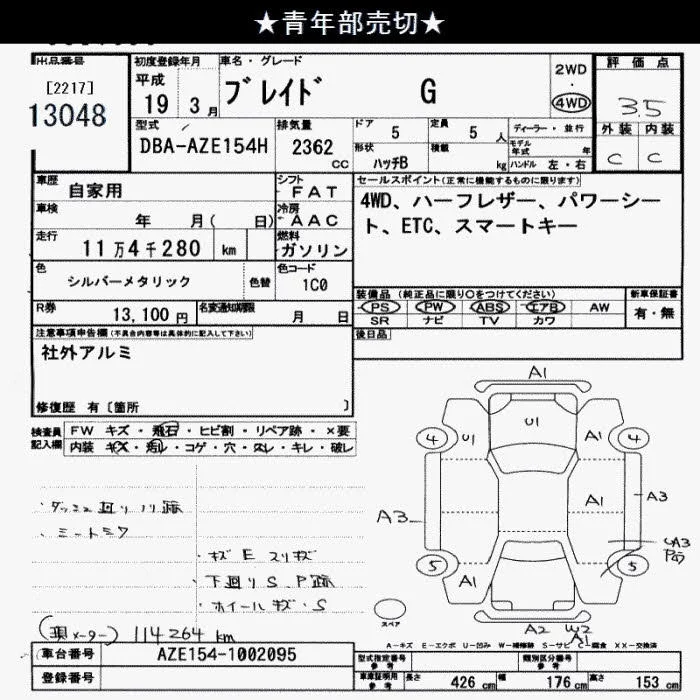 ★青年部売切★
出品番号
[2217]
13048
初度登録年月
平成
19 3月
車名・グレード
ブレイド G
2WD
・
4WD
評価点
3.5
外装 内装
C C
型式
DBA-AZE154H
排気量
2362 cc
ドア 5
定員 5 人
形状 ハッチB
積載 kg
ディーラー・並行
モデル年式 年
ハンドル 左・右
車歴
自家用
シフト
FAT
車検 年 月( 日)
冷房
AAC
走行
11万4千280 km
燃料
ガソリン
色
シルバーメタリック
色替
色コード
1C0
R券
13,100円
名変通知期限 月 日
セールスポイント(正常に機能するものに限ります)
4WD、ハーフレザー、パワーシー
ト、ETC、スマートキー
装備品(純正品に限り○をつけてください)
PS PW ABS エアB AW
SR ナビ TV カワ
新車保証書
有・無
後日品
注意事項申告欄(不具合内容等は具体的に記入して下さい)
社外アルミ
修復歴 有〔箇所 〕
検査員
記入欄
FW キズ・飛石・ヒビ割・リペア跡・×要
内装 キズ・汚レ・コゲ・穴・スレ・キレ・破レ
・ダッシュ回りノリ跡
・シートシワ
・キズ E スリキズ
・下廻り S、P跡
・ホイールキズ・S
(現メーター) 114264 km
A1
U1
4 U1 A1 4
A1
A3 A3
UA3
P跡
5 A1 5
A2 W2
A1
スペア
A-キズ E-エクボ U-凹み W-補修跡 S-サビ C-腐食 XX-交換済
車台番号 AZE154-1002095
登録番号
型式指定番号
参考
類別区分番号
参考
車庫証明用
参考
長さ 426 cm 幅 176 cm 高さ 153 cm